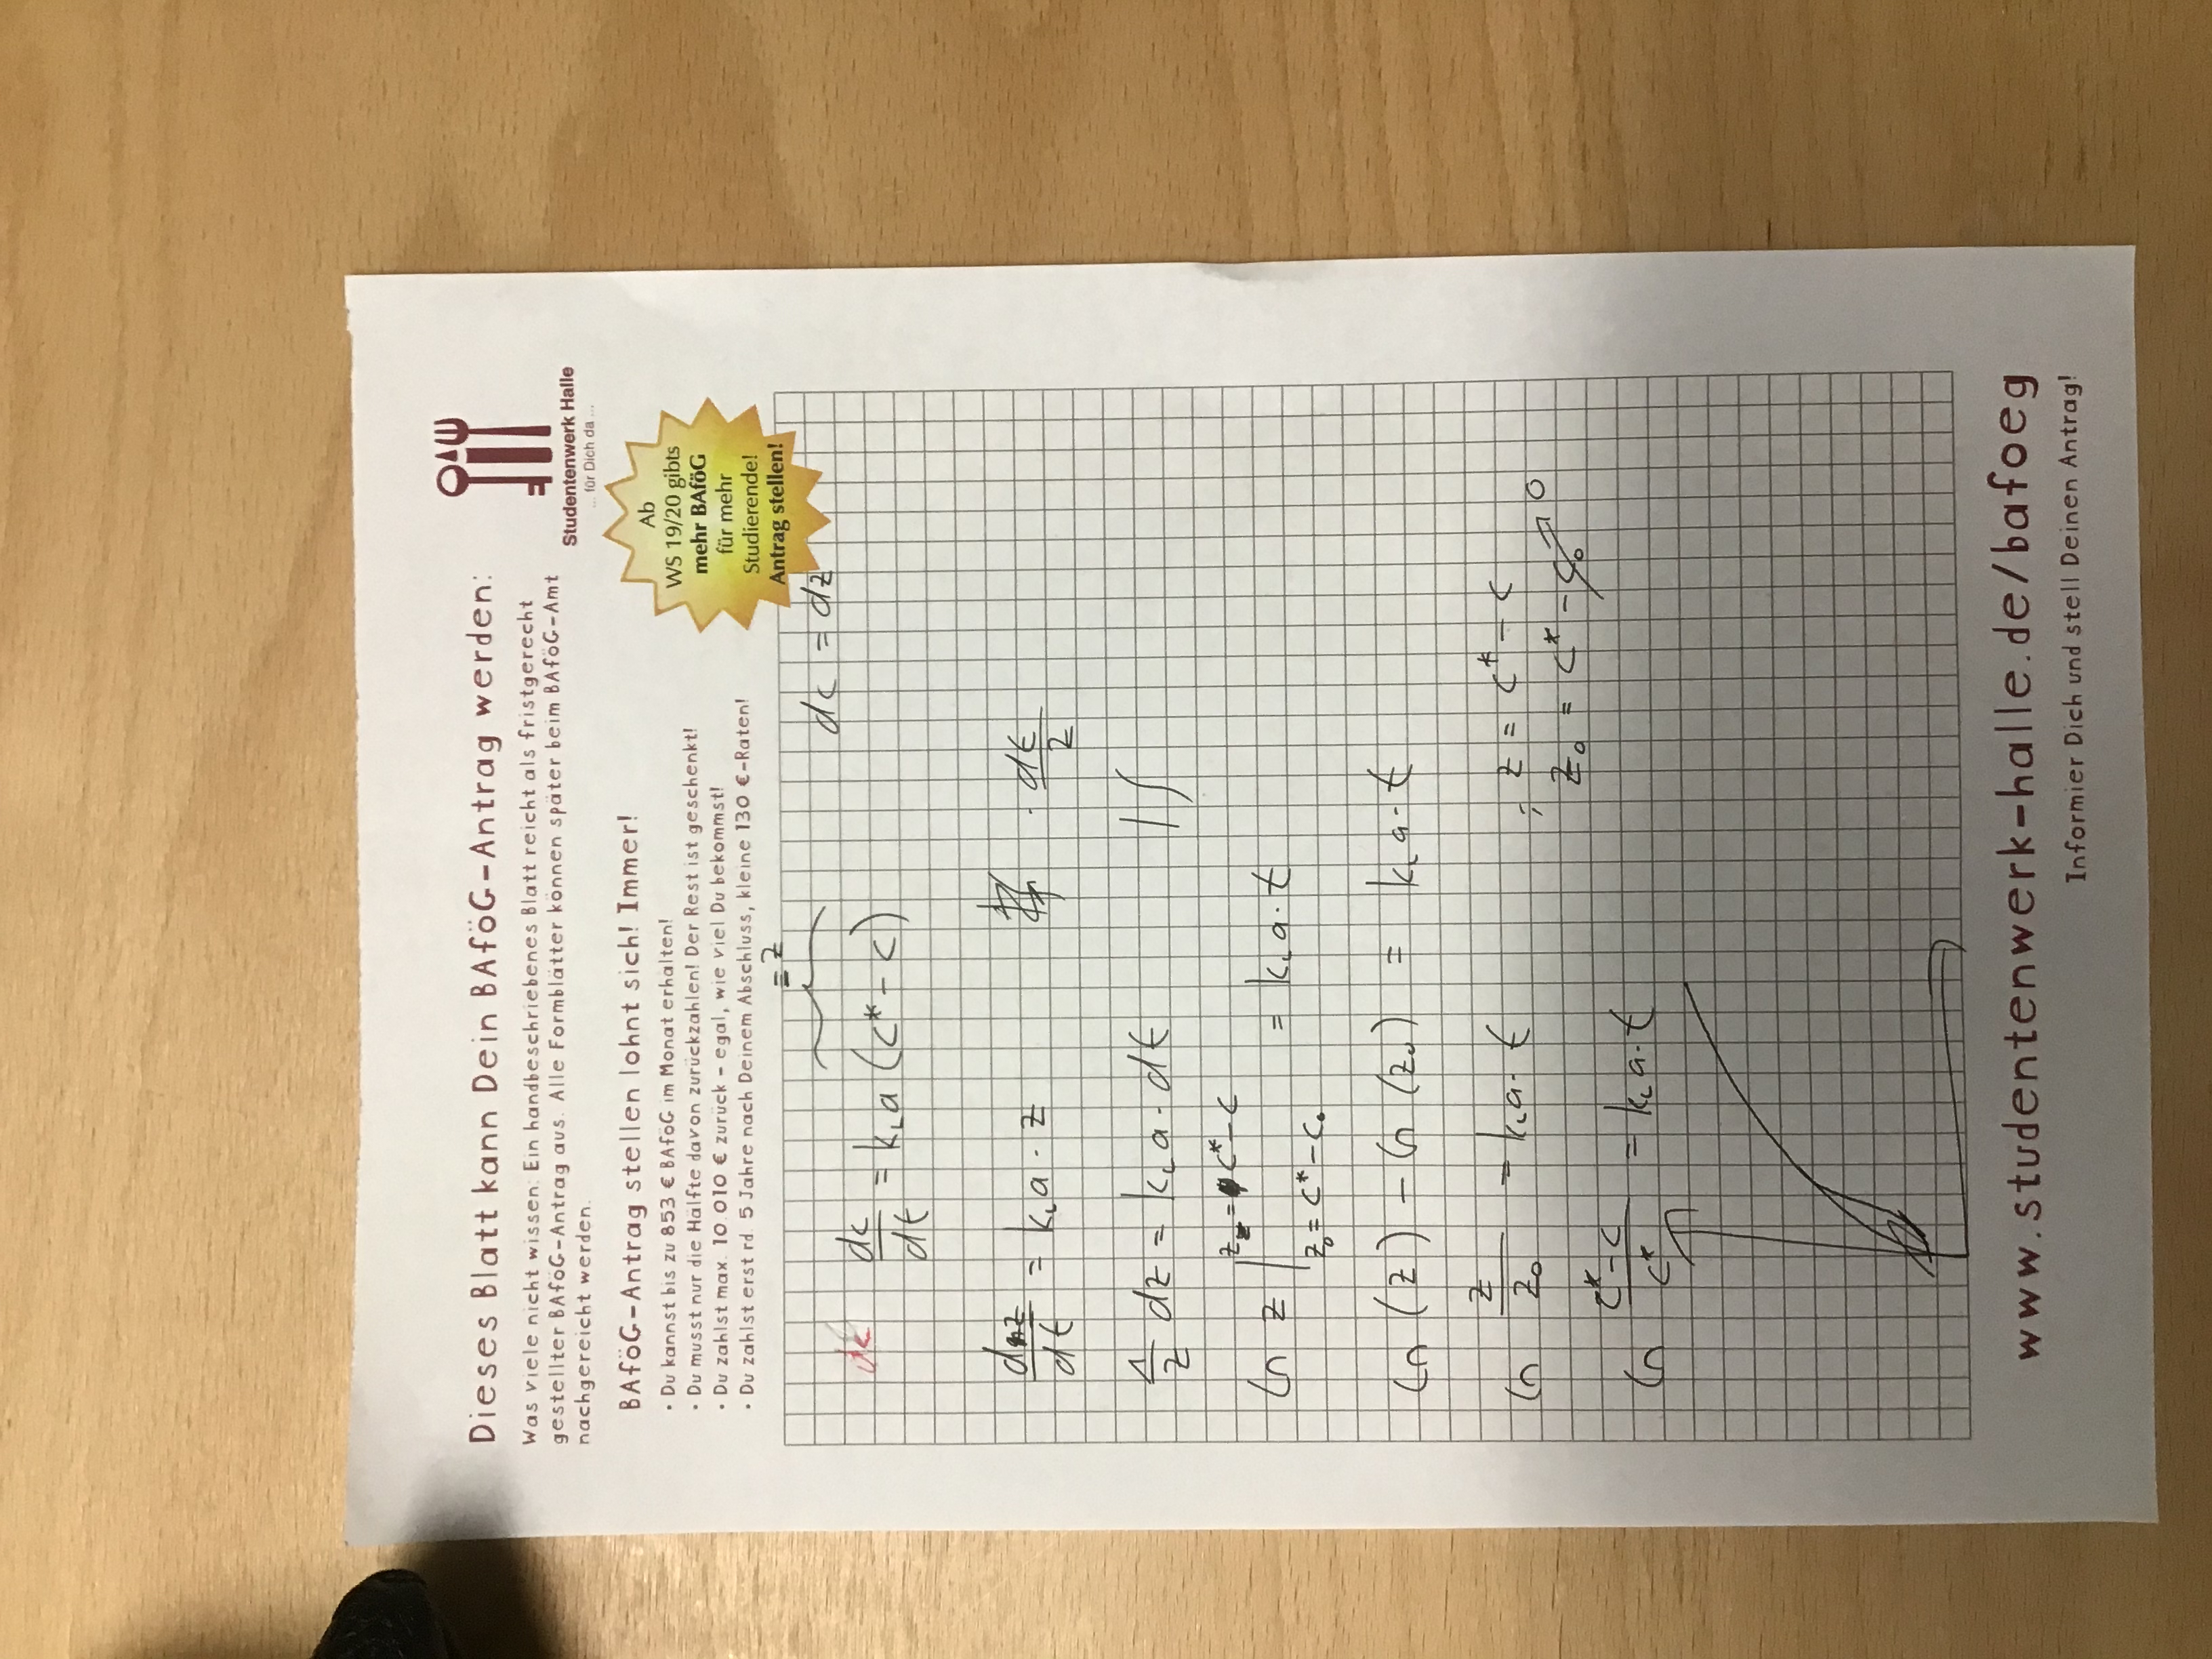 Dieses Blatt kann Dein BAföG-Antrag werden:
Was viele nicht wissen: Ein handbeschriebenes Blatt reicht als fristgerecht
gestellter BAföG-Antrag aus. Alle Formblätter können später beim BAföG-Amt
nachgereicht werden.
Studentenwerk Halle
... für Dich da ...
BAföG-Antrag stellen lohnt sich! Immer!
• Du kannst bis zu 853 € BAföG im Monat erhalten!
• Du musst nur die Hälfte davon zurückzahlen! Der Rest ist geschenkt!
• Du zahlst max. 10 010 € zurück – egal, wie viel Du bekommst!
• Du zahlst erst rd. 5 Jahre nach Deinem Abschluss, kleine 130 €-Raten!
Ab
WS 19/20 gibts
mehr BAföG
für mehr
Studierende!
Antrag stellen!
= z
dc = dz
dc/dt = kLa (c* - c)
dz/dt = kLa · z · dt/z
1/z dz = kLa · dt | ∫
ln z | z = c* - c z0 = c* - c0 = kLa · t
ln (z) - ln (z0) = kLa · t
ln z/z0 = kLa · t ; z = c* - c
z0 = c* - c0 → 0
ln c* - c/c* = kLa · t
www.studentenwerk-halle.de/bafoeg
Informier Dich und stell Deinen Antrag!